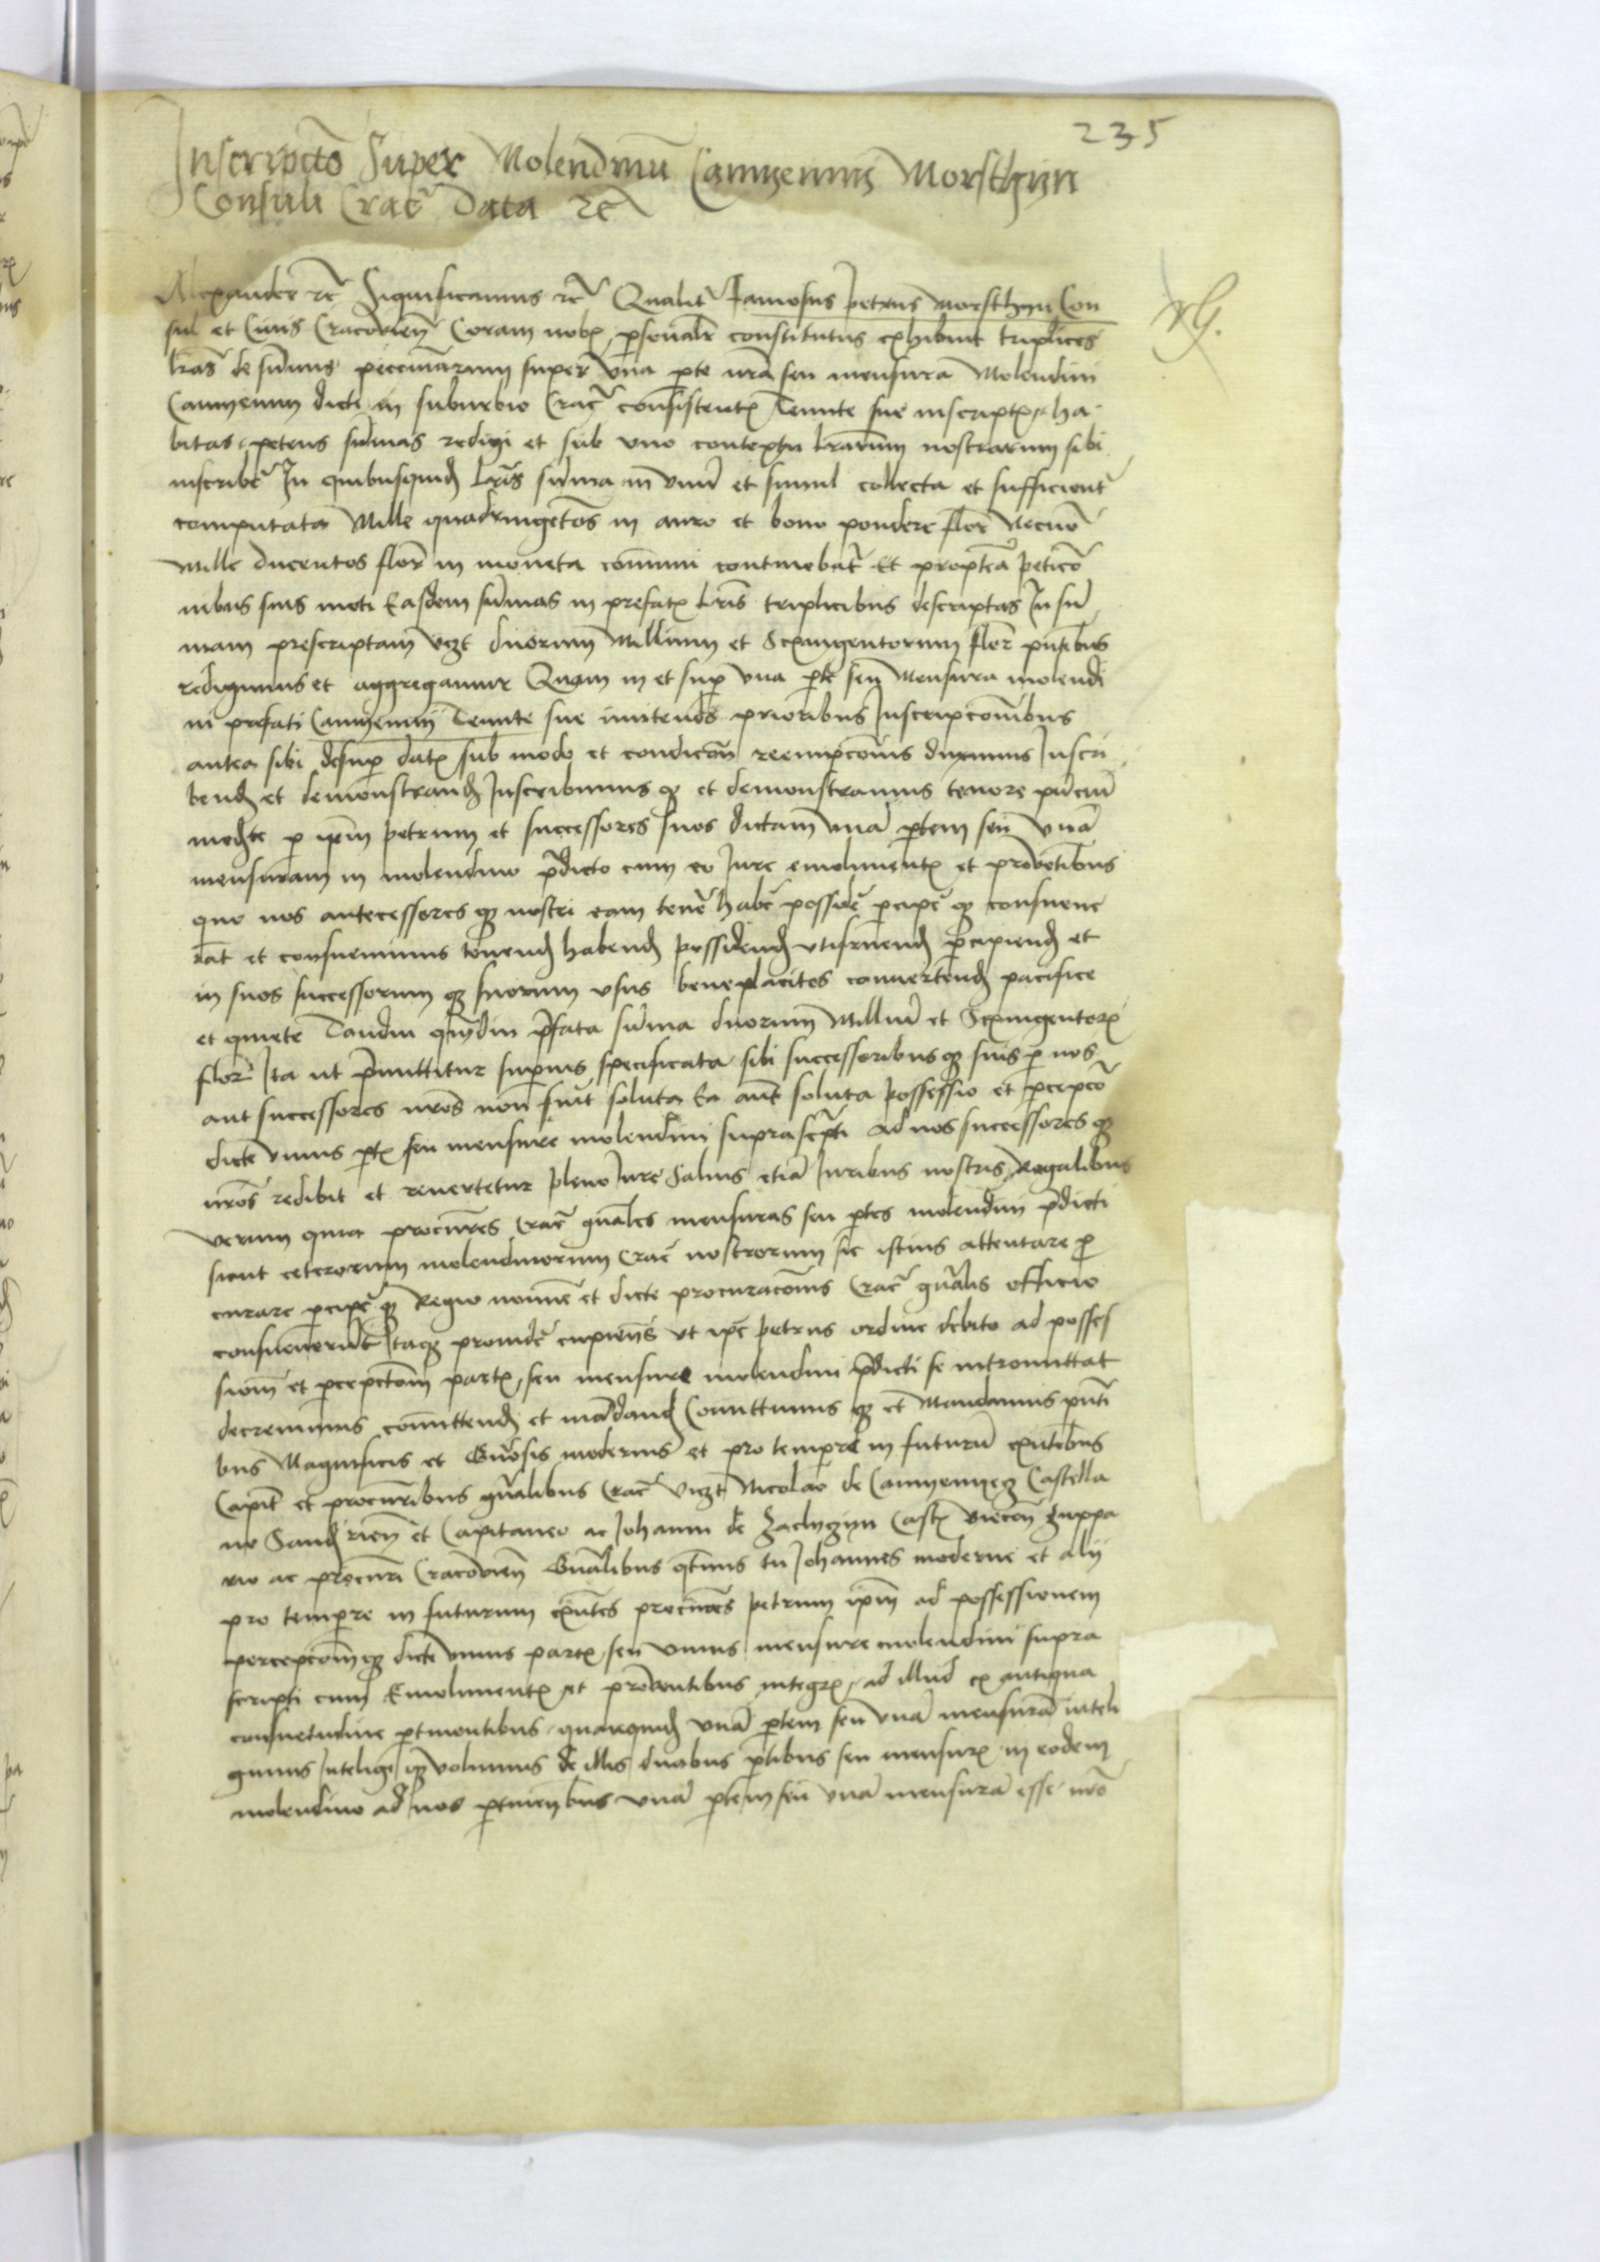 235
Inscriptō Super Molendinū Camyenniï Morsthyn
Consuli Crac̄ Data ⁊c̄
Alexander ⁊c̄ Significamus ⁊c̄ Qualit̄ Famosus petrus Morsthyn Con
sul et Civis Cracovien̄ Coram nobꝭ ꝑsonalr̄ constitutus exhibuit triplices
lr̄as de sum̄is peccuniarum super una ꝑte nr̄a seu mensura Molendini
Camyenny dicti in suburbio Crac̄ consistentꝭ Tenute sue inscriptꝭ ha
bitas petens sum̄as redigi et sub uno contextu lr̄arum nostrarum sibi
inscribē In quibusquidꝫ lr̄is sum̄a in unū et simul collecta et sufficient̄
computata Mille quadringētos in auro et bono pondere flor̄ Necnō
Mille ducentos flor̄ in moneta com̄uni continebat̄ Et propterea peticō
nibus suis moti Easdem sum̄as in prefatꝭ lr̄is triplicibus descriptas In sū
mam prescriptam vꝫt duorum Millium et Sexingentorum flor̄ pn̄tibus
redigimus et aggregamus Quam in et suꝑ una ꝑte seu Mensura molendi
ni prefati Camyenny Tenute sue innitendo prioribus Inscripcōnibus
antea sibi desuꝑ datꝭ sub modo et condicōn̄ reempcōnis duximus Inscri
bendꝫ et demonstrandꝫ Inscribimusqꝫ et demonstramus tenore pn̄ciū
medꝫte ꝑ ip̄m petrum et successores suos dictam unā ꝑtem seu unā
mensuram in molendino p̄dicto cum eo Iure emolimentꝭ et proventibus
quo nos antecessoresqꝫ nostri eam tenē habē possidē ꝑcipēqꝫ consueve
rāt et consuevimus tenendꝫ habendꝫ possidendꝫ utifruendꝫ ꝑcipiendꝫ et
in suos successorumqꝫ suorum usus beneplacitos convertendꝫ pacifice
et quiete Tamdiu quādiu p̄fata sum̄a duorum Milliū et Sexingentorꝭ
flor̄ Ita ut p̄mittitur superius specificata sibi successoribusqꝫ suis ꝑ nos
aut successores nr̄os non fuīt soluta Ea aūt soluta possessio et ꝑcepcō
dicte unius ꝑtꝭ seu mensure molendini suprasc̄pti ad nos successoresqꝫ
nr̄os redibit et revertetur pleno Iure Salvis etiā Iuribus nostris Regalibus
verum quia procurēs Crac̄ gn̄ales mensuras seu ꝑtes molendini p̄dicti
sicut ceterorum molendinorum Crac̄ nostrorum sic istius attentare ꝑ
curare ꝑcipēqꝫ Regio nomīe et dicte procuracōnis Crac̄ gn̄alis officio
consueverūt Itaqꝫ providē cupientes ut ip̄e petrus ordine debito ad posses
sionē et ꝑcepctōm partꝭ seu mensure molendini p̄dicti se intromittat
decrevimus com̄ittendꝫ et mādandꝫ Com̄ittimusqꝫ et Mandamus pn̄ti
bus Magnificis et Gn̄osis modernis et pro tempore in futurū exn̄tibus
Capit̄ et procur̄ibus gn̄alibus Crac̄ viꝫt Nicolao de Camyenyecz Castella
no Sandꝫrien̄ et Capitaneo ac Iohanni de Zaclyczyn Castꝭ Biecen̄ zuppa
rio ac procurī Cracovien̄ Gn̄alibus q̄tinus tu Iohannes moderne et alij
pro tempore in futurum exn̄tes procur̄es petrum ip̄m ad possessionem
percepcōm̄qꝫ dicte unius partꝭ seu unius mensure molendini supra
scripti cum Emolimentꝭ et proventibus integrꝭ ad illud ex antiqua
consuetudine ꝑtinentibus quamquidꝫ unā ꝑtem seu unā mensurā inteli
gimus Inteligiqꝫ volumus de illis duabus ꝑtibus seu mensurꝭ in eodem
molendino ad nos ꝑtinenbus unā ꝑtem seu unā mensurā esse nr̄ō